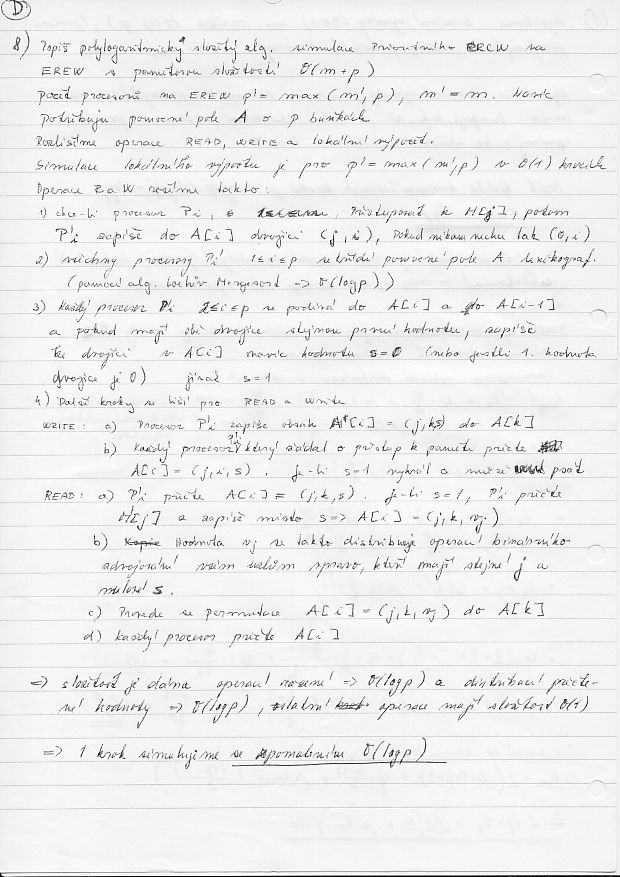 D
8) Popiš polylogaritmický složitý alg. simulace Prioritního CRCW na
EREW s paměťovou složitostí O(m+p)
Počet procesorů na EREW p' = max(m', p), m' = m. Navíc
potřebuju pomocné pole A o p buňkách
Rozlišíme operace READ, WRITE a lokální výpočet.
Simulace lokálního výpočtu je pro p' = max(m', p) v O(1) krocích
Operace R a W řešíme takto:
1) chce-li procesor Pi, přistupovat k M[j], potom
P'i zapíše do A[i] dvojici (j, i), pokud nikam nechce tak (0, i)
2) všechny procesory P'i 1≤i≤p setřídí pomocné pole A lexikograf.
(pomocí alg. Mergesort => O(log p))
3) Každý procesor P'i 2≤i≤p se podívá do A[i] a do A[i-1]
a pokud mají obě dvojice stejnou první hodnotu, zapíše
ke dvojici v A[i] navíc hodnotu s=0 (nebo jestli 1. hodnota
dvojice je 0) jinak s=1
4) Další kroky se liší pro READ a WRITE
WRITE: a) Procesor P'i zapíše obsah A[i] = (j,k,s) do A[k]
b) Každý procesor P'i který žádal o přístup k paměti přečte
A[i] = (j, i, s). Je-li s=1 vyhrál a může psát
READ: a) P'i přečte A[i] = (j,k,s). Je-li s=1, P'i přečte
M[j] a zapíše místo s => A[i] = (j, k, vj)
b) Hodnota vj se takto distribuuje operací binárního
zdvojování všem buňkám vpravo, které mají stejné j a
nulové s.
c) Provede se permutace A[i] = (j, k, vj) do A[k]
d) Každý procesor přečte A[i]
=> složitost je dána operací řazení => O(log p) a distribucí přečte-
né hodnoty => O(log p), ostatní operace mají složitost O(1)
=> 1 krok simulujeme se zpomalením O(log p)